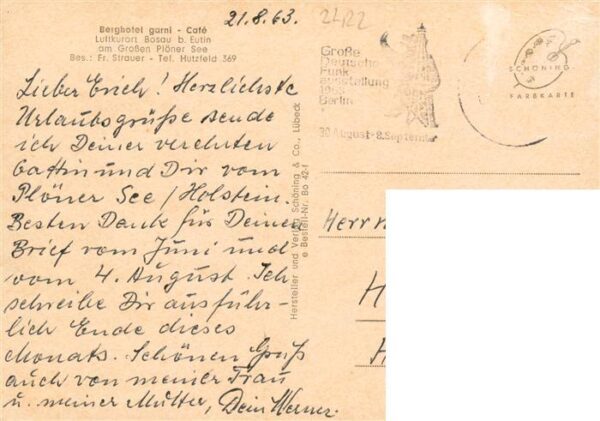 21.8.63.
2422
Berghotel garni - Café
Luftkurort Bosau b. Eutin
am Großen Plöner See
Bes.: Fr. Strauer - Tel. Hutzfeld 369
Lieber Erich! Herzlichste
Urlaubsgrüße sende
ich Deiner verehrten
Gattin und Dir vom
Plöner See / Holstein.
Besten Dank für Deinen
Brief vom Juni und
vom 4. August. Ich
schreibe Dir ausführ-
lich Ende dieses
Monats. Schönen Gruß
auch von meiner Frau
u. meiner Mutter, Dein Werner.
Hersteller und Verlag Schöning & Co., Lübeck
Bestell-Nr. Bo 42 f
Große
Deutsche
Funk
ausstellung
1963
Berlin
30. August - 8. September
SCHÖNING
FARBKARTE
Herrn
H
H